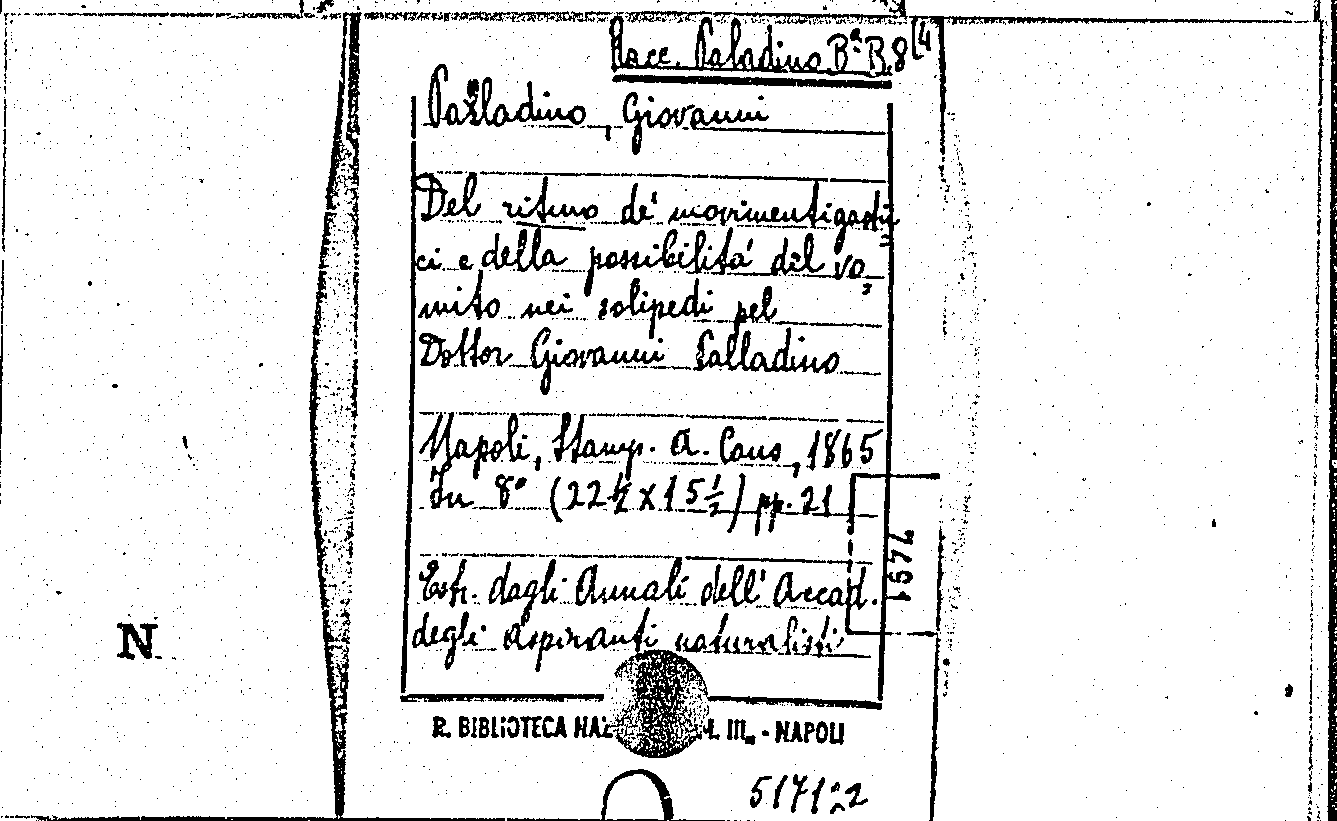 Racc. Paladino Bᵃ B.8(4
Palladino, Giovanni
Del ritmo de' movimenti gastri=
ci e della possibilità del vo=
mito nei solipedi pel
Dottor Giovanni Palladino
Napoli, Stamp. A. Cons, 1865
In 8° (22½ x 15½) pp. 21
1574
Estr. dagli Annali dell' Accad.
degli aspiranti naturalisti
N
R. BIBLIOTECA NAZ M. III. - NAPOLI
517122